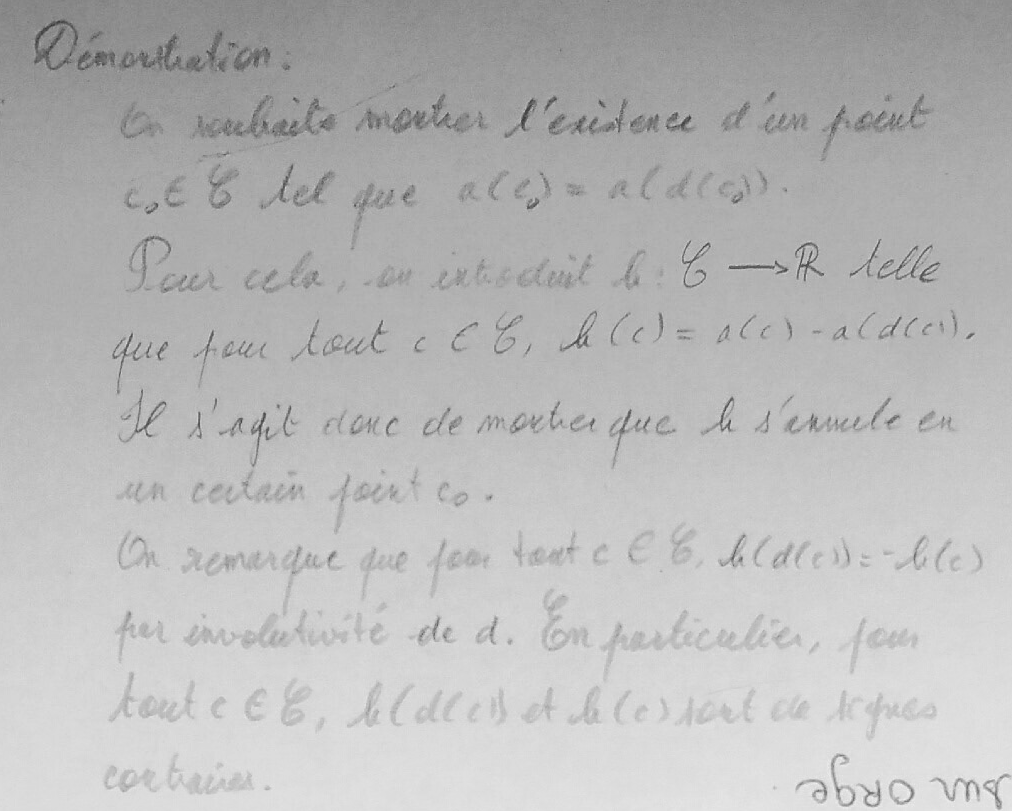 Démonstration :
On souhaite montrer l'existence d'un point
c₀ ∈ 𝒞 tel que a(c₀) = a(d(c₀)).
Pour cela, on introduit h : 𝒞 → ℝ telle
que pour tout c ∈ 𝒞, h(c) = a(c) - a(d(c)).
Il s'agit donc de montrer que h s'annule en
un certain point c₀.
On remarque que pour tout c ∈ 𝒞, h(d(c)) = -h(c)
par involutivité de d. En particulier, pour
tout c ∈ 𝒞, h(d(c)) et h(c) sont de signes
contraires.